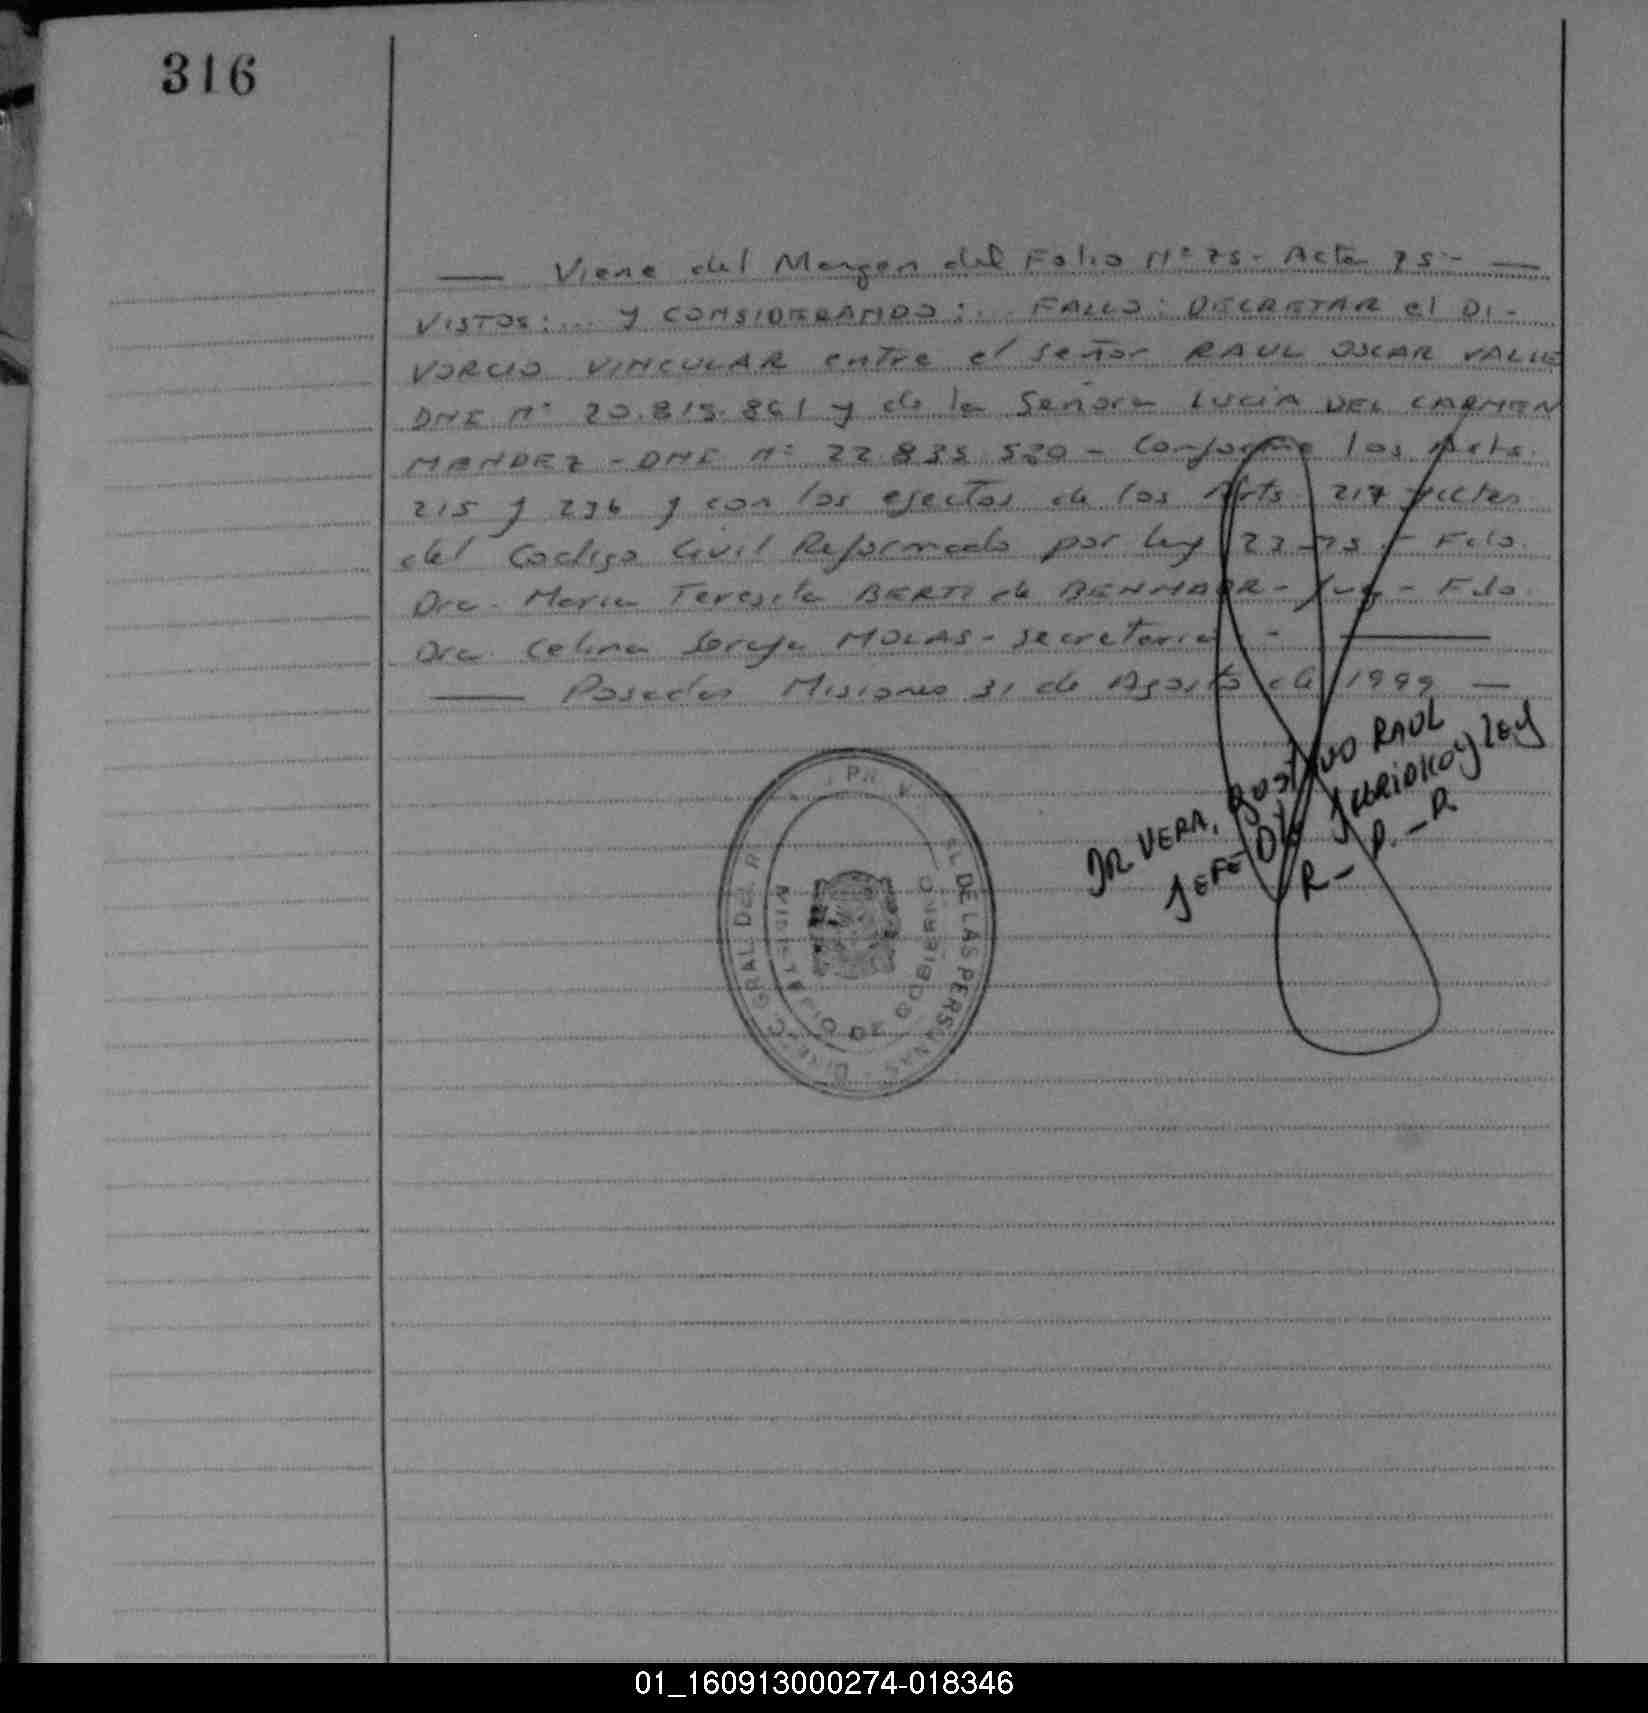 316
Viene del Margen del Folio Nº 75 - Acta 75 -
VISTOS: ... y CONSIDERANDO: ... FALLO: DECRETAR el DI-
VORCIO VINCULAR entre el Señor RAUL OSCAR VALLE
DNI Nº 20.815.861 y de la Señora LUCIA DEL CARMEN
MENDEZ - DNI Nº 22.835.520 - Conforme los Arts.
215 y 236 y con los efectos de los Arts. 217 y
del Codigo Civil Reformado por Ley - Fdo.
Dra. Maria Teresita BERTI de - Juez - Fdo.
Dra. Celina MOLAS - Secretaria -
Posadas Misiones 31 de Agosto de 1999
DR VERA, RAUL
JEFE
R - P. - P.
DE LAS PERSONAS
GRAL DEL R
MINISTERIO DE GOBIERNO
01_160913000274-018346